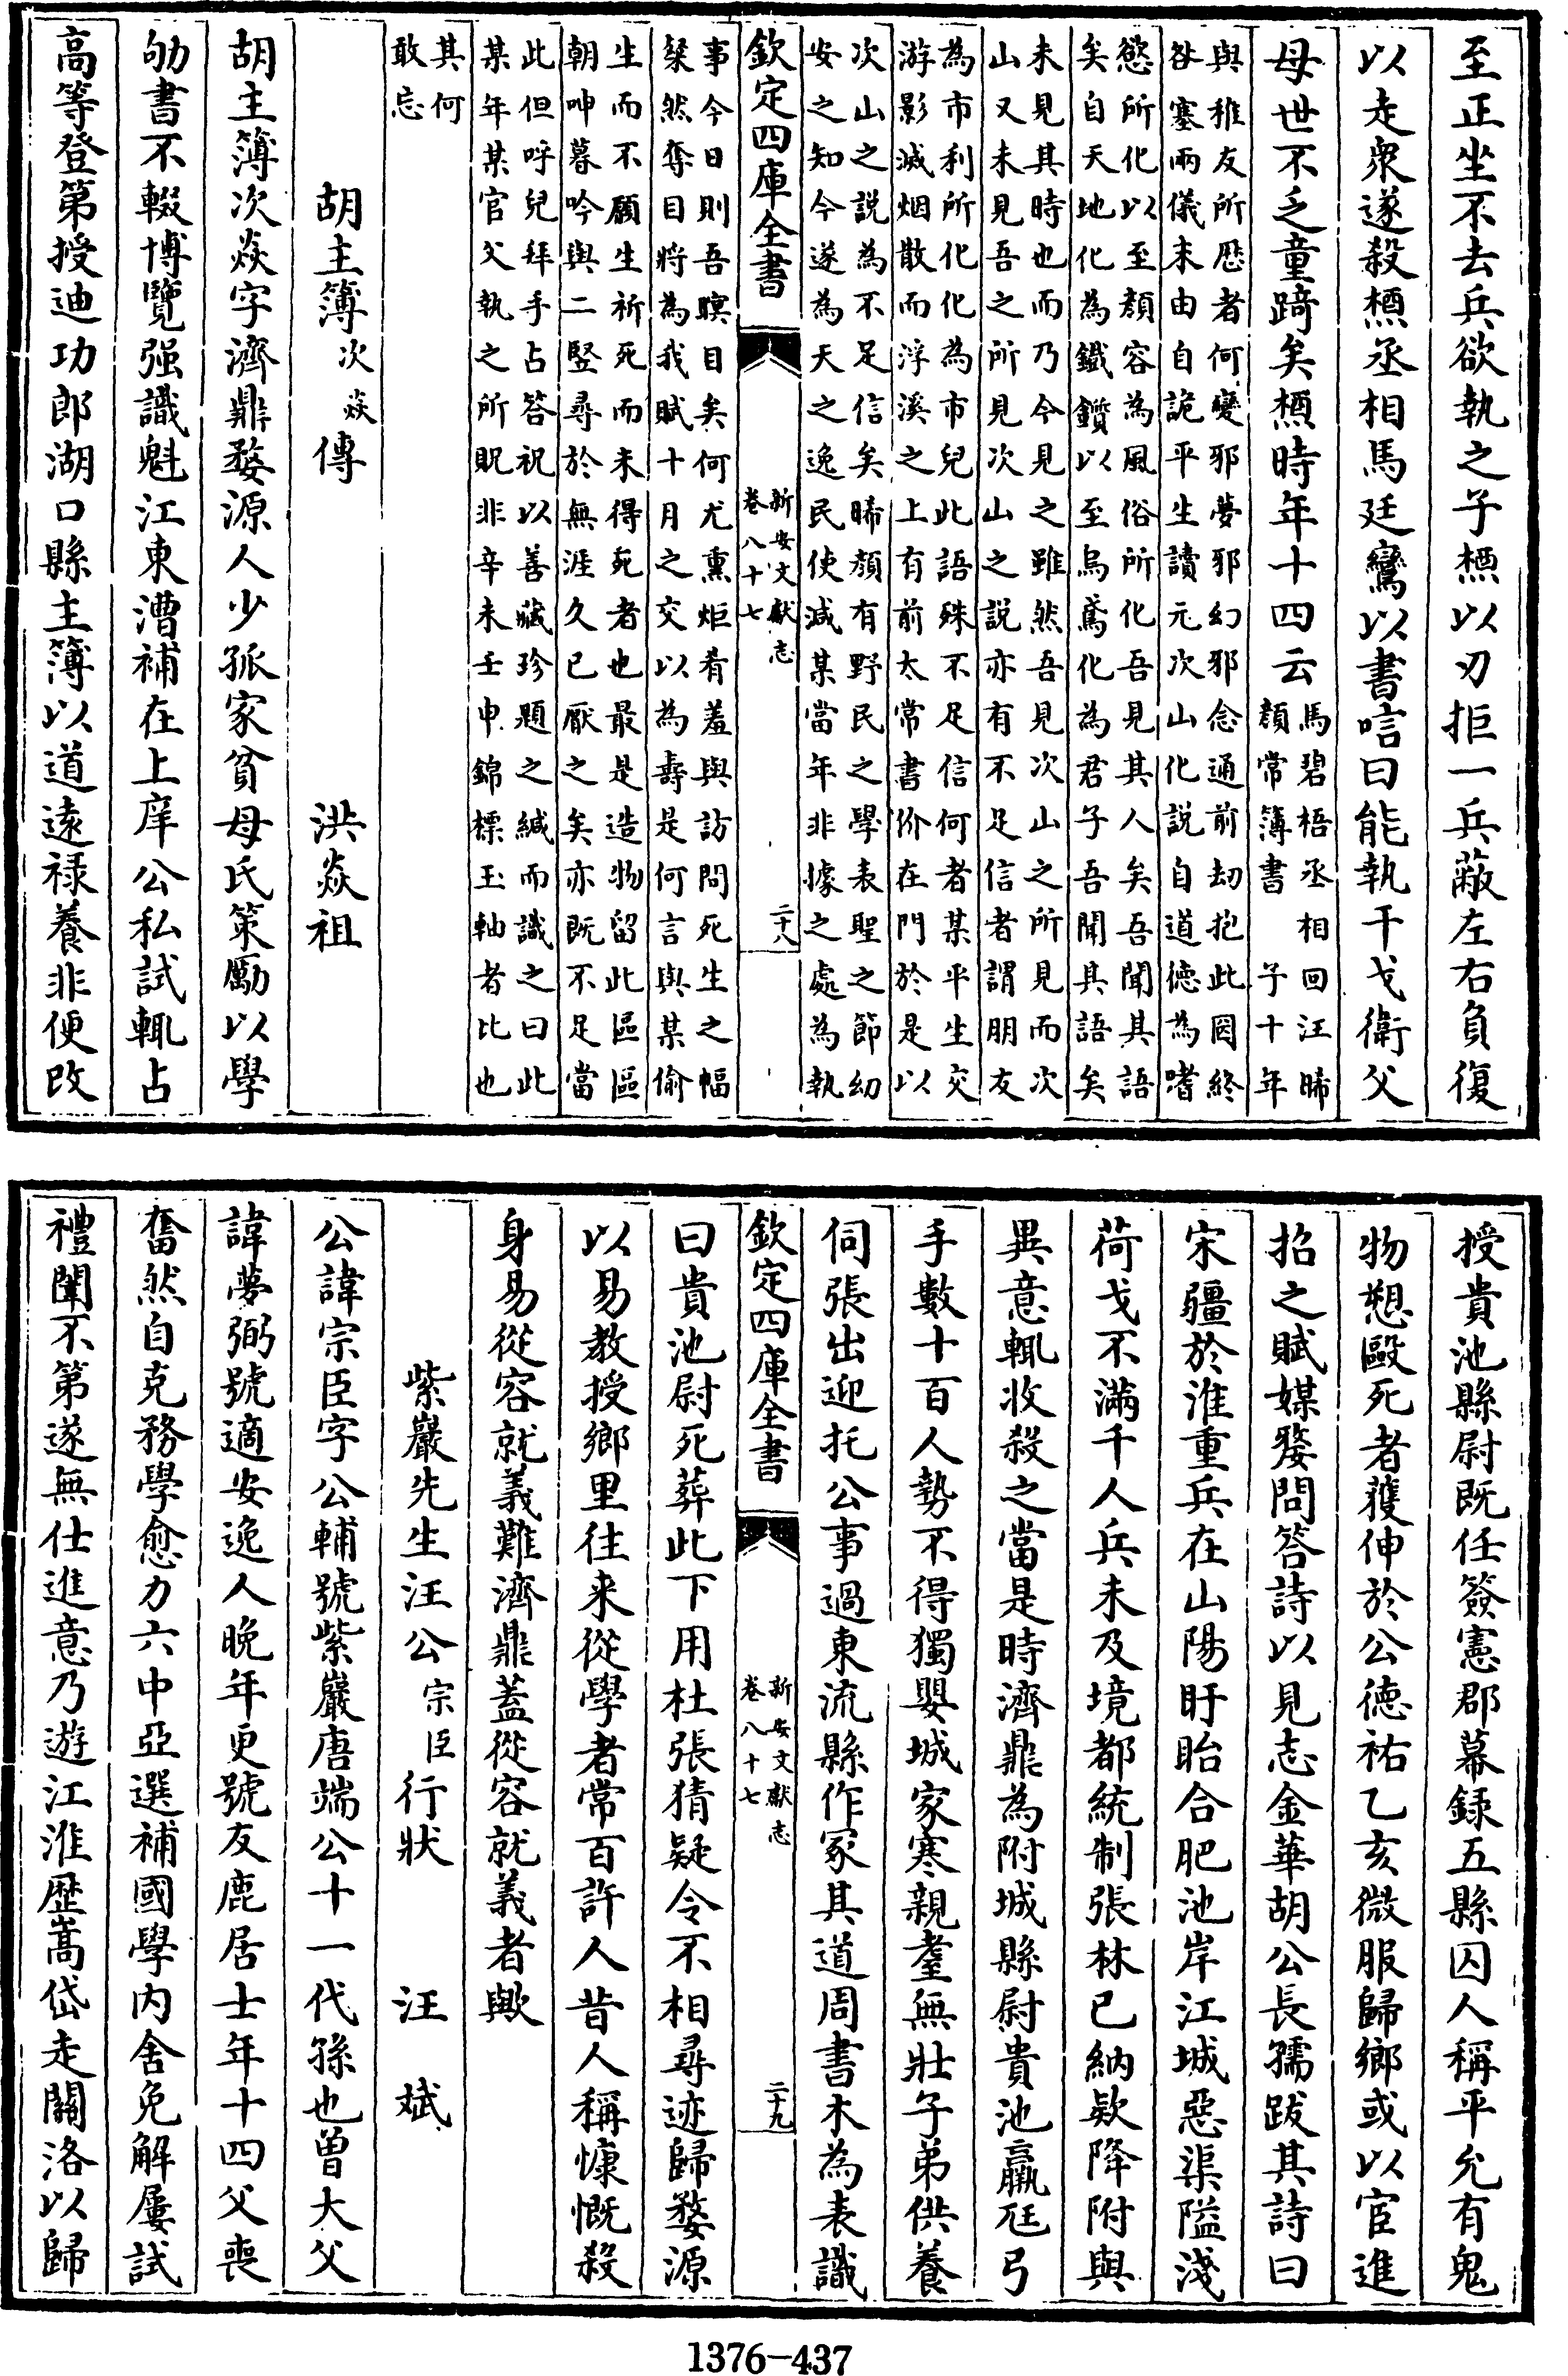 至正坐不去兵欲執之子櫄以刃拒一兵蔽左右負復
以走衆遂殺櫄丞相馬廷鸞以書唁曰能執干戈衛父
母世不乏童踦矣櫄時年十四云馬碧梧丞相回汪晞
顔常簿書　子十年
與稚友所歴者何變邪夢邪幻邪念通前刼抱此罔終
咎塞兩儀未由自詭平生讀元次山化説自道徳為嗜
慾所化以至顔容為風俗所化吾見其人矣吾聞其語
矣自天地化為鐵鑽以至烏鳶化為君子吾聞其語矣
未見其時也而乃今見之雖然吾見次山之所見而次
山又未見吾之所見次山之説亦有不足信者謂朋友
為市利所化化為市兒此語殊不足信何者某平生交
游影滅烟散而浮溪之上有前太常書价在門於是以
次山之説為不足信矣晞顔有野民之學表聖之節幼
安之知今遂為天之逸民使減某當年非據之處為執
欽定四庫全書
新安文獻志
卷八十七
二十八
事今日則吾瞑目矣何尤熏炬肴羞與訪問死生之幅
粲然奪目將為我賦十月之交以為壽是何言與某偷
生而不願生祈死而未得死者也最是造物留此區區
朝呻暮吟與二竪尋於無涯久已厭之矣亦既不足當
此但呼兒拜手占答祝以善藏珍題之緘而識之曰此
某年某官父執之所貺非辛未壬申錦標玉軸者比也
其何
敢忘
胡主簿次焱傳　洪焱祖
胡主簿次焱字濟鼎婺源人少孤家貧母氏策勵以學
劬書不輟博覽强識魁江東漕補在上庠公私試輒占
高等登第授迪功郎湖口縣主簿以道遠禄養非便改
授貴池縣尉既任簽憲郡幕録五縣囚人稱平允有鬼
物愬毆死者獲伸於公德祐乙亥微服歸鄉或以宦進
招之賦媒嫠問答詩以見志金華胡公長孺跋其詩曰
宋疆於淮重兵在山陽盱眙合肥池岸江城惡渠隘淺
荷戈不滿千人兵未及境都統制張林已納欵降附與
異意輒收殺之當是時濟鼎為附城縣尉貴池羸尫弓
手數十百人勢不得獨嬰城家寒親耋無壯子弟供養
伺張出迎托公事過東流縣作冢其道周書木為表識
欽定四庫全書
新安文獻志
卷八十七
二十九
曰貴池尉死葬此下用杜張猜疑令不相尋迹歸婺源
以易教授鄉里往来從學者常百許人昔人稱慷慨殺
身易從容就義難濟鼎蓋從容就義者歟
紫巖先生汪公宗臣行狀　汪斌
公諱宗臣字公輔號紫巖唐端公十一代孫也曾大父
諱夢弼號適安逸人晩年更號友鹿居士年十四父喪
奮然自克務學愈力六中亞選補國學内舍免解屢試
禮闈不第遂無仕進意乃遊江淮歴嵩岱走關洛以歸
1376-437